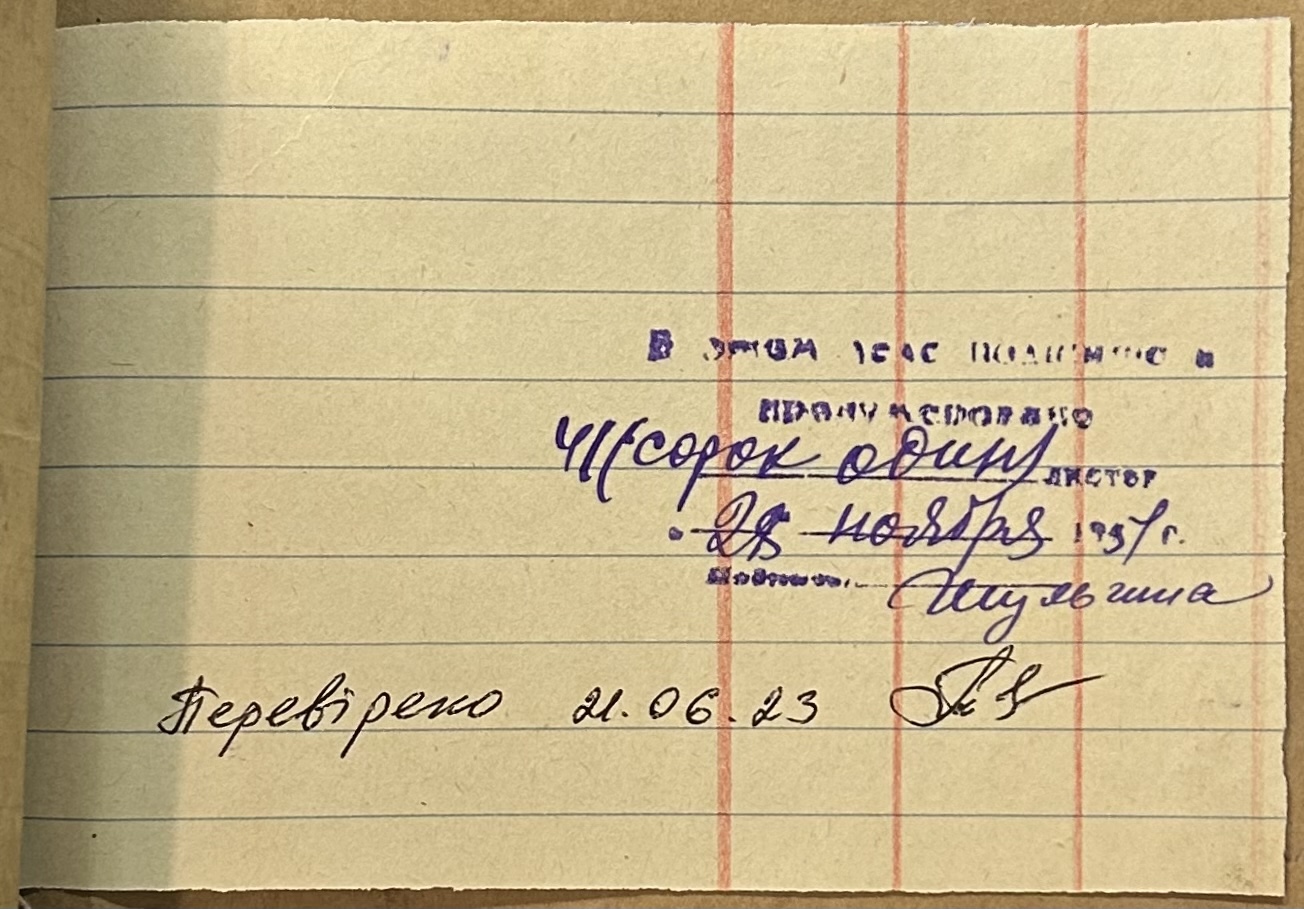 В этом деле подшито и
пронумеровано
41 (сорок один) листов
" ноября 195 г.
Подпись. Шульгина
Перевірено 21.06.23